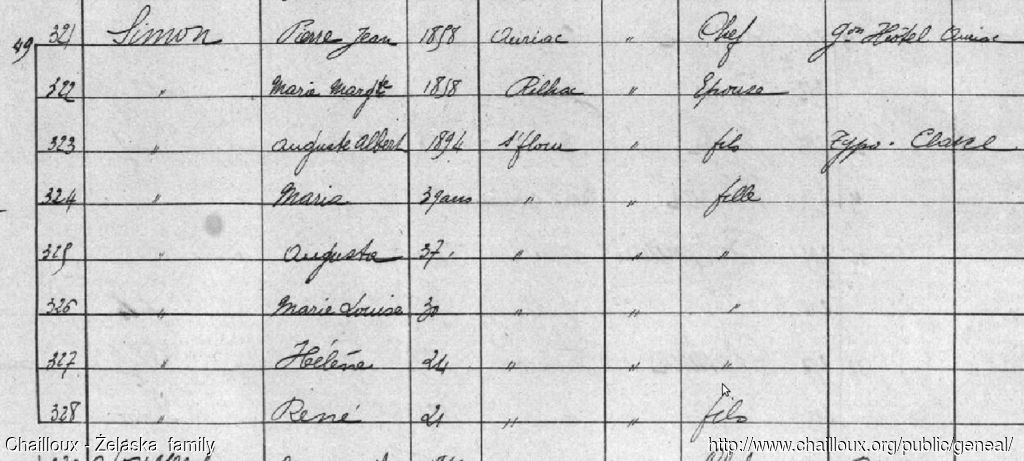 49 321 Simon Pierre Jean 1858 Auriac " Chef gon Hôtel Auriac
322 " Marie Margte 1858 Rilhac " Epouse
323 " Auguste Albert 1894 St flour " fils Typo. Chassel
324 " Maria 39 ans " " fille
325 " Augusta 37 . " " "
326 " Marie Louise 30 " " "
327 " Hélène 24 " " "
328 " René 21 " " fils
Chailloux - Żelaska family http://www.chailloux.org/public/geneal/